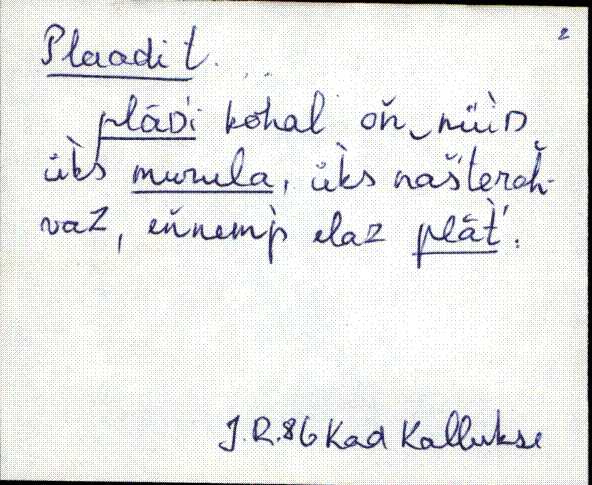 2
Plaadi t.
plāᴅ́i kohal oň nüìᴅ
ük̀s murula, ük̀s našterah̆-
vaz, eňnemp̀ elaz plāt̀'.
J.R.86 Kad Kallukse